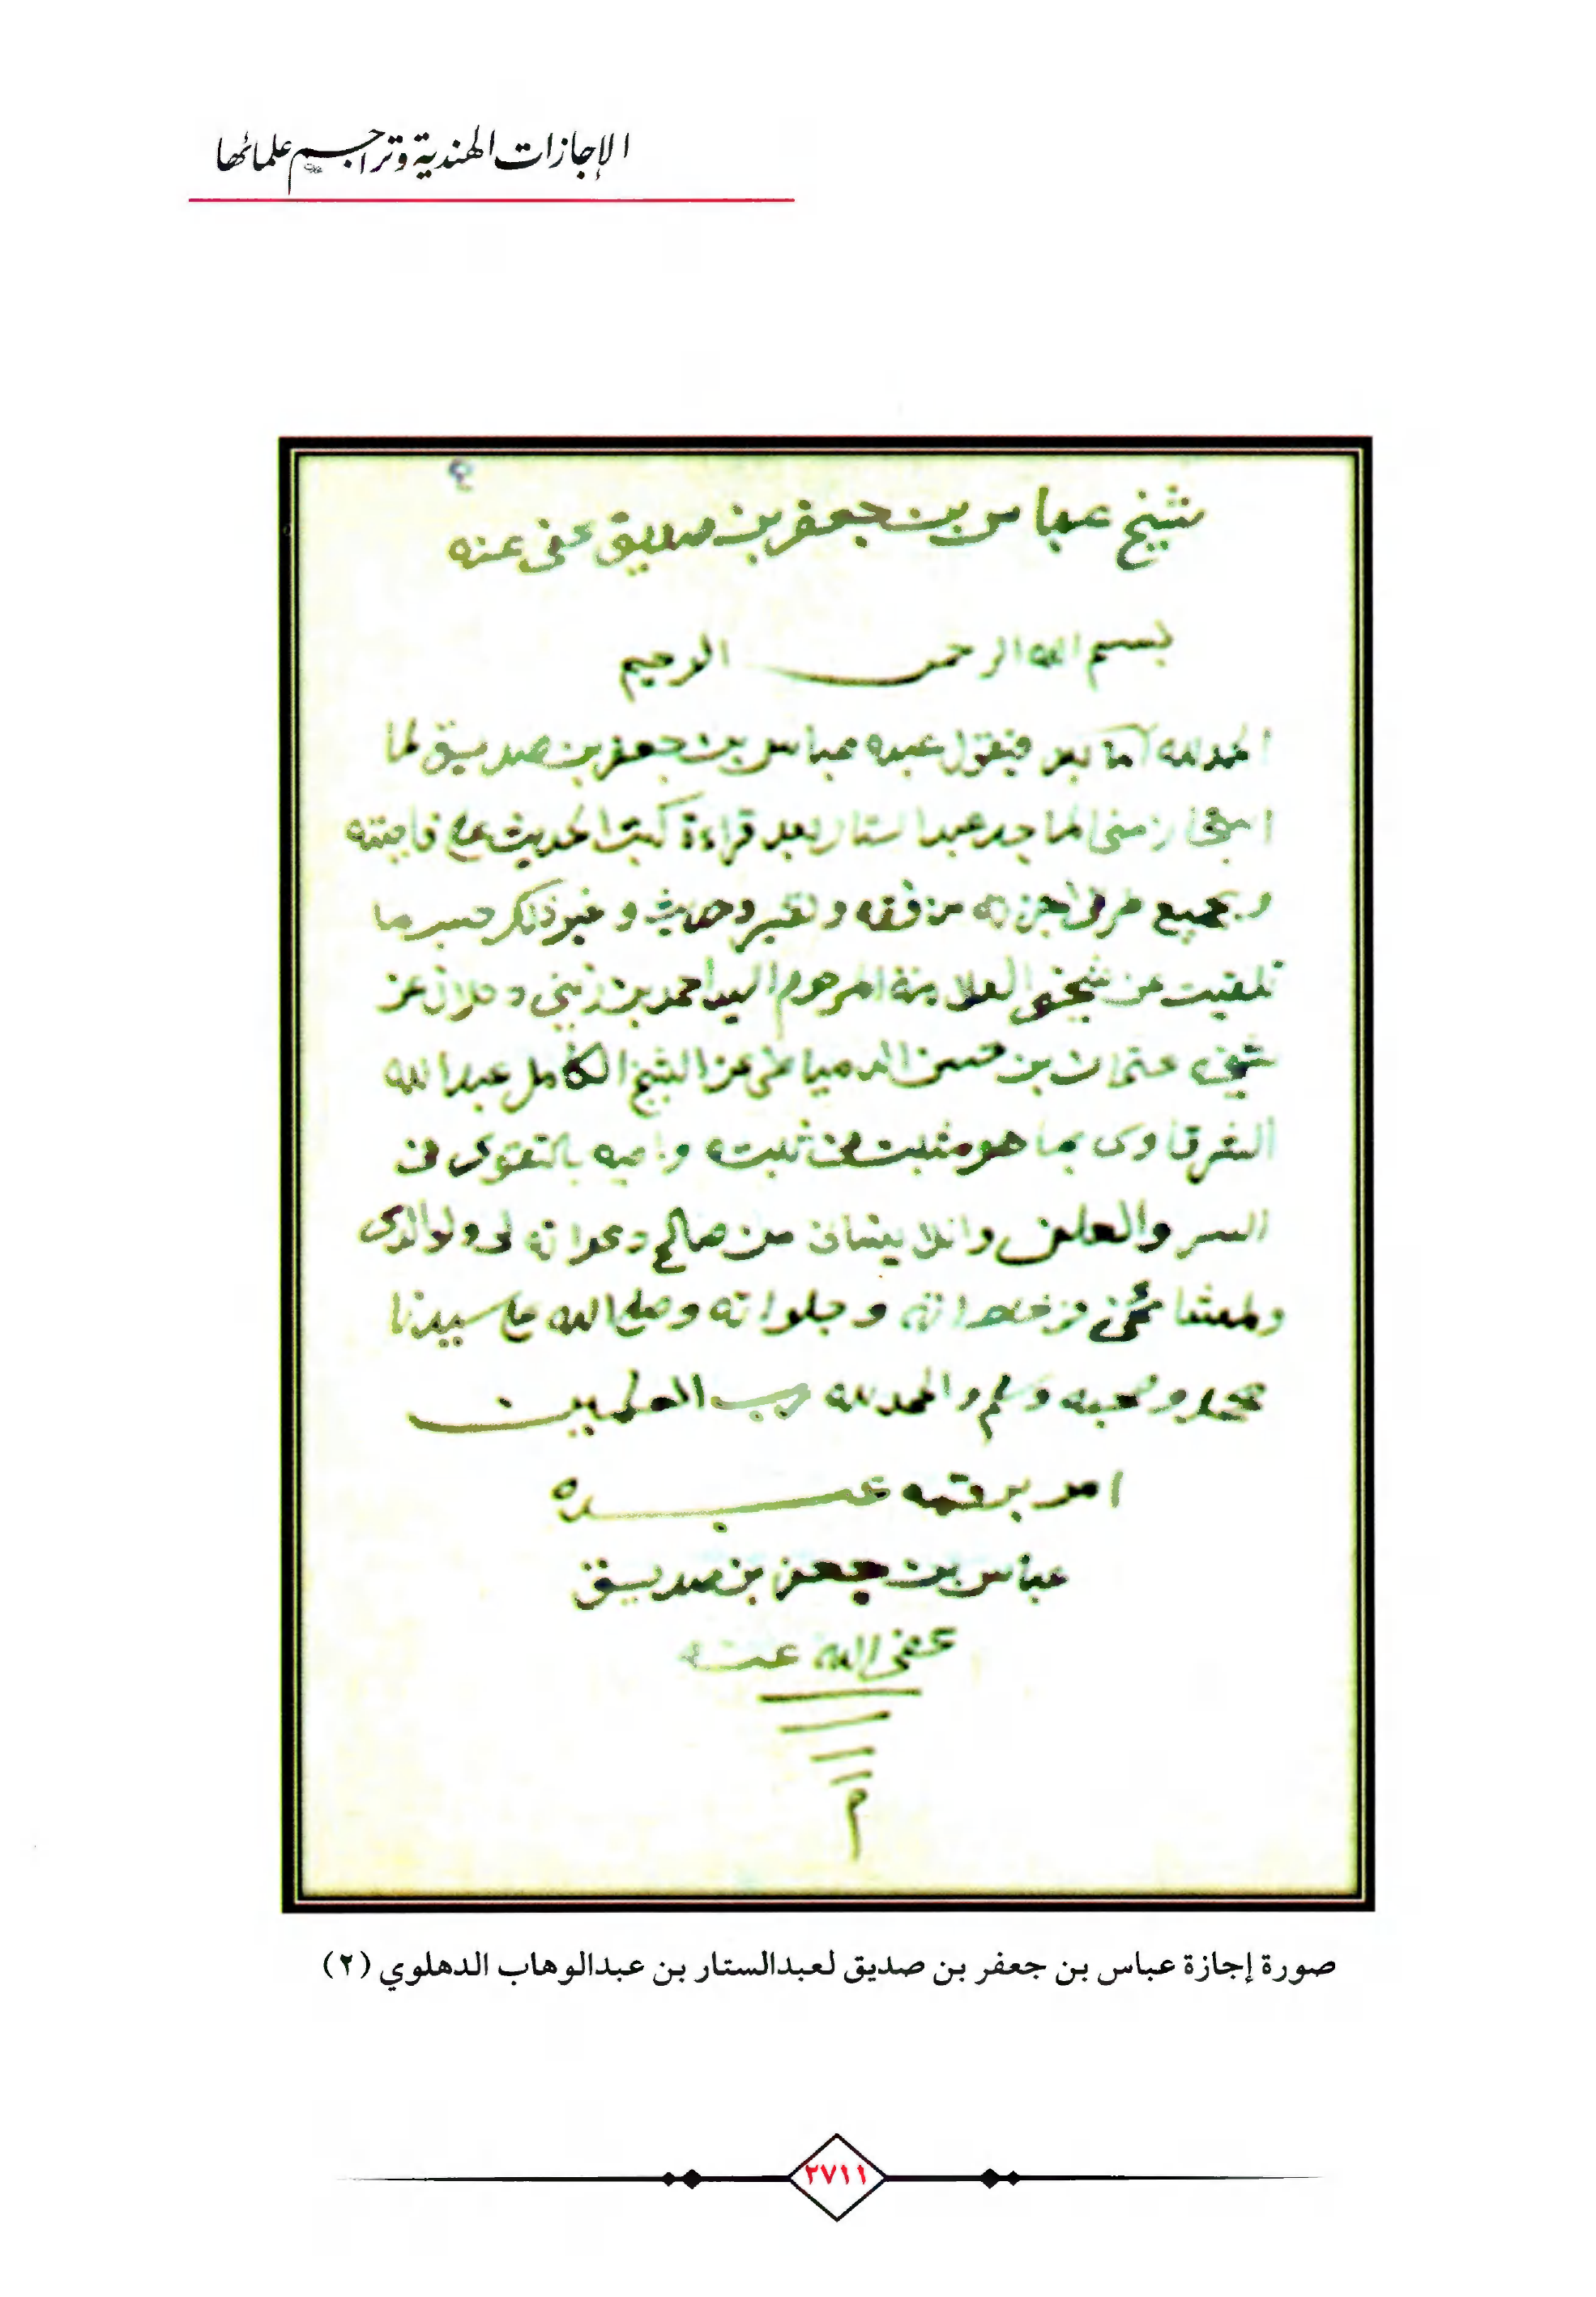 الإجازات الهندية وتراجم علمائها
شيخ عباس بن جعفر بن صديق عفى عنه
بسم الله الرحمن الرحيم
الحمد لله اما بعد فيقول عبده عباس بن جعفر بن صديق لما
استجازني الماجد عبد الستار بعد قراءة كتب الحديث على فاجبته
وبجميع من فقه وتفسير وحديث وغير ذلك حسب ما
تلقيت عن شيخي العلامة المرحوم السيد احمد بن زيني دحلان عن
شيخه عثمان بن حسن الدمياطي عن الشيخ الكامل عبد الله
الشرقاوى بما هو مثبت في ثبته واوصيه بالتقوى فى
السر والعلن وان لا ينسانى من صالح دعواته لى ولوالدى
ولمشايخى فى خلواته وجلواته وصلى الله على سيدنا
محمد وصحبه وسلم والحمد لله رب العلمين
امر برقمه عبده
عباس بن جعفر بن صديق
عفى الله عنه
م
صورة إجازة عباس بن جعفر بن صديق لعبدالستار بن عبدالوهاب الدهلوي (٢)
٢٧١١